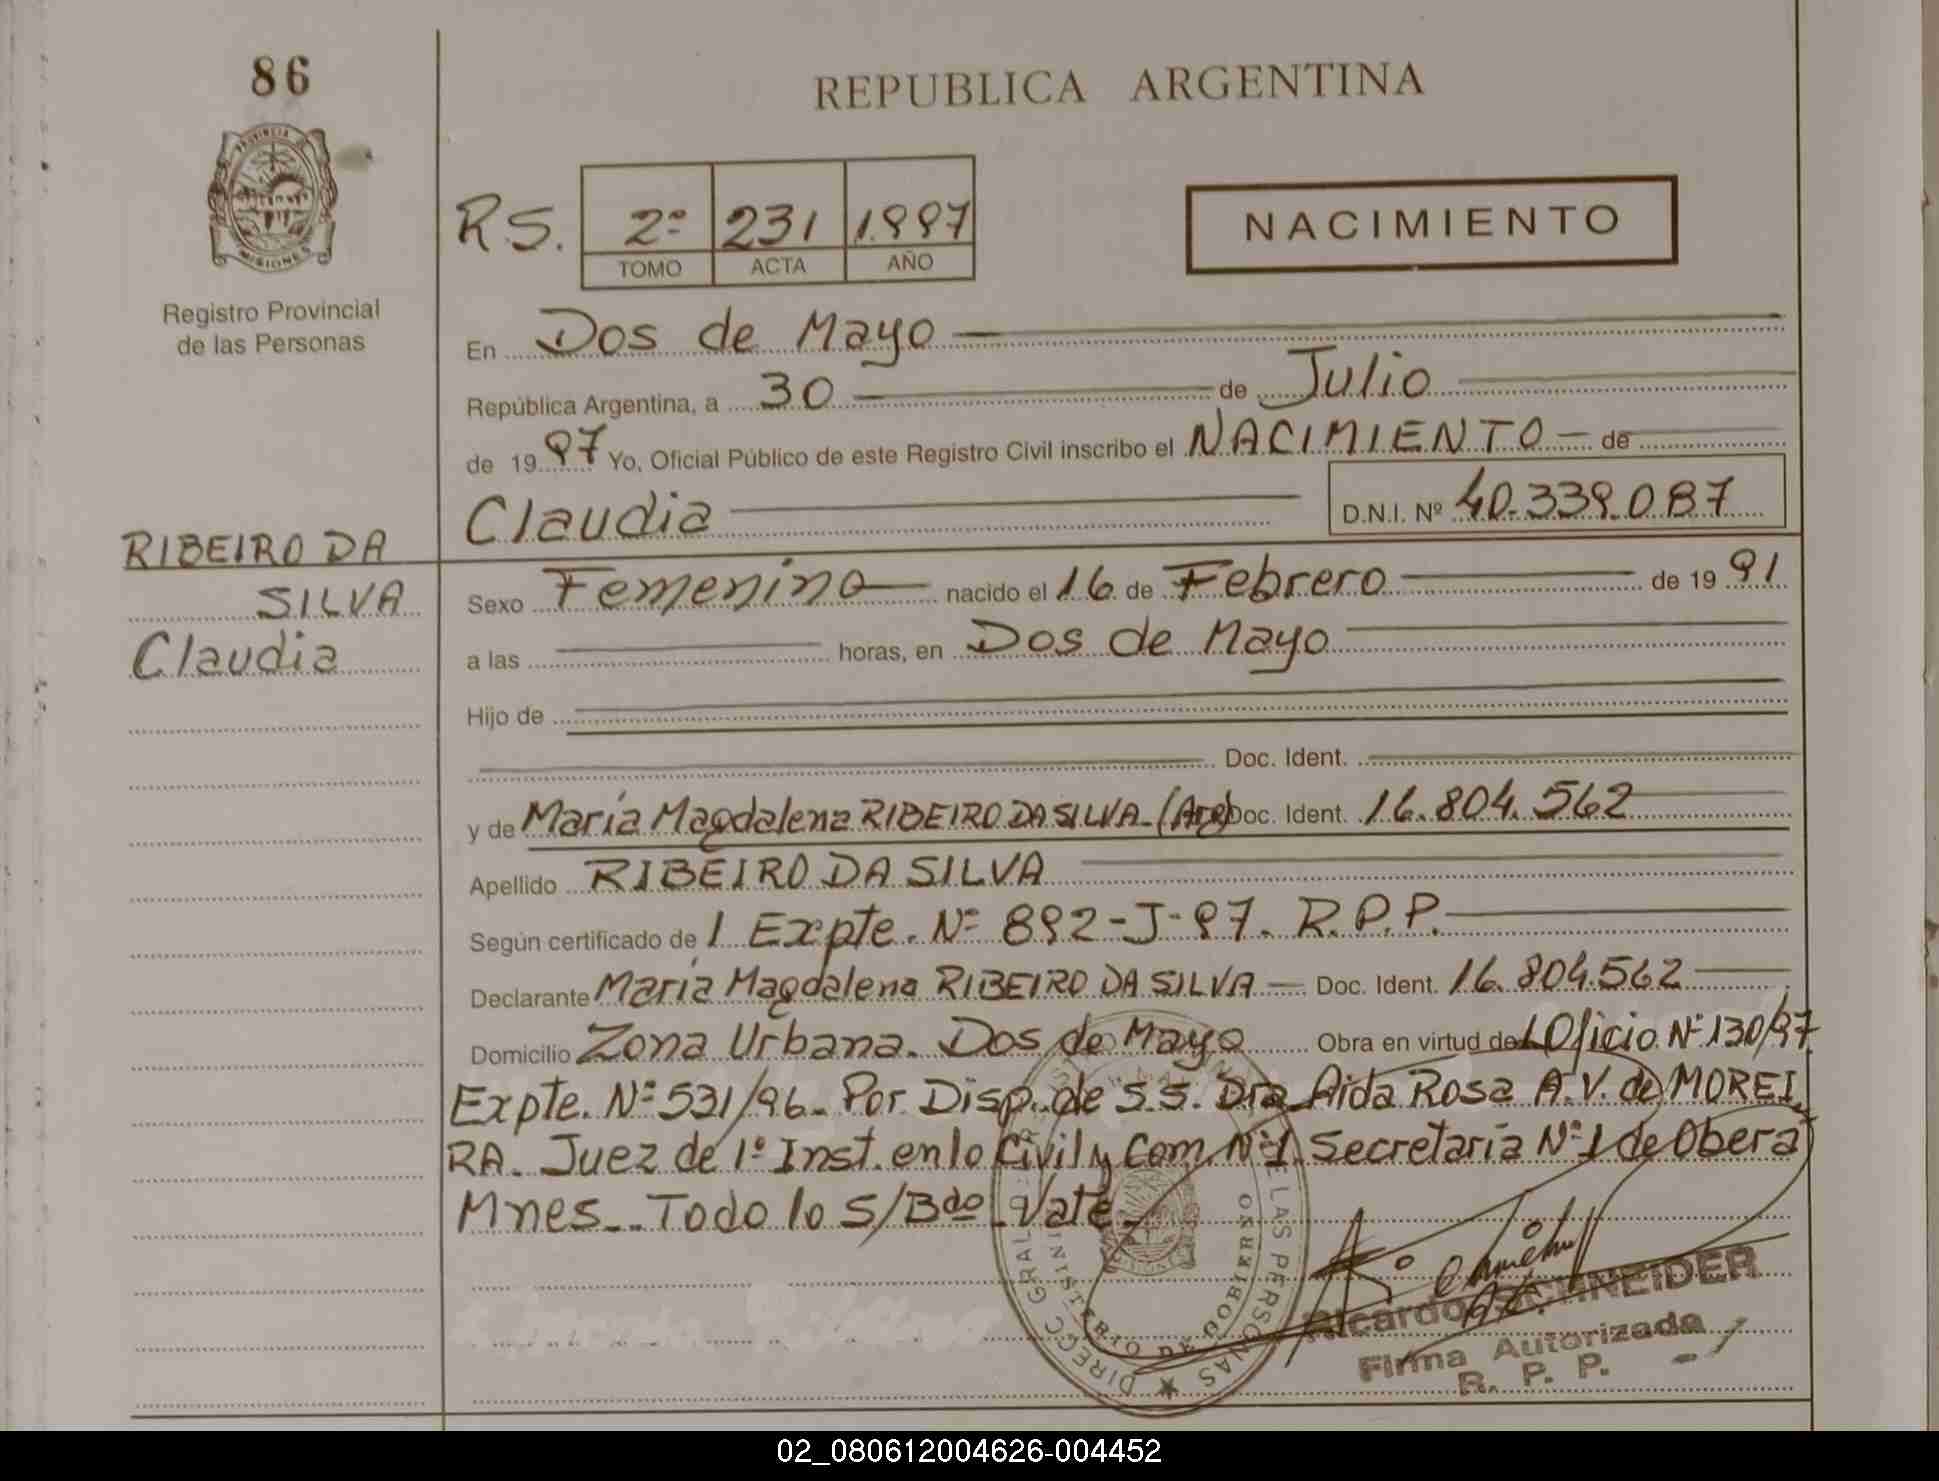 86
REPUBLICA ARGENTINA
PROVINCIA
MISIONES
Registro Provincial
de las Personas
R.S. 2º 231 1.997
TOMO ACTA AÑO
NACIMIENTO
En Dos de Mayo
República Argentina, a 30 de Julio
de 19 97 Yo, Oficial Público de este Registro Civil inscribo el NACIMIENTO - de
Claudia D.N.I. Nº 40.339.087
RIBEIRO DA
SILVA
Claudia
Sexo Femenino nacido el 16 de Febrero de 19 91
a las horas, en Dos de Mayo
Hijo de
Doc. Ident.
y de María Magdalena RIBEIRO DA SILVA - (Arg) Doc. Ident. 16.804.562
Apellido RIBEIRO DA SILVA
Según certificado de l Expte. Nº 892-J-97. R.P.P.
Declarante María Magdalena RIBEIRO DA SILVA - Doc. Ident. 16.804.562
Domicilio Zona Urbana. Dos de Mayo Obra en virtud del Oficio Nº 130/97
Expte. Nº 531/96. Por Disp. de S.S. Dra Aida Rosa A.V. de MOREI
RA. Juez de 1º Inst. en lo Civil y Com. Nº 1. Secretaría Nº 1 de Obera
Mnes. Todo lo S/Bdo Vale
DIRECC GRAL DE LAS PERSONAS
MINISTERIO DE GOBIERNO
Ricardo SCHNEIDER
Firma Autorizada
R. P. P.
02_080612004626-004452